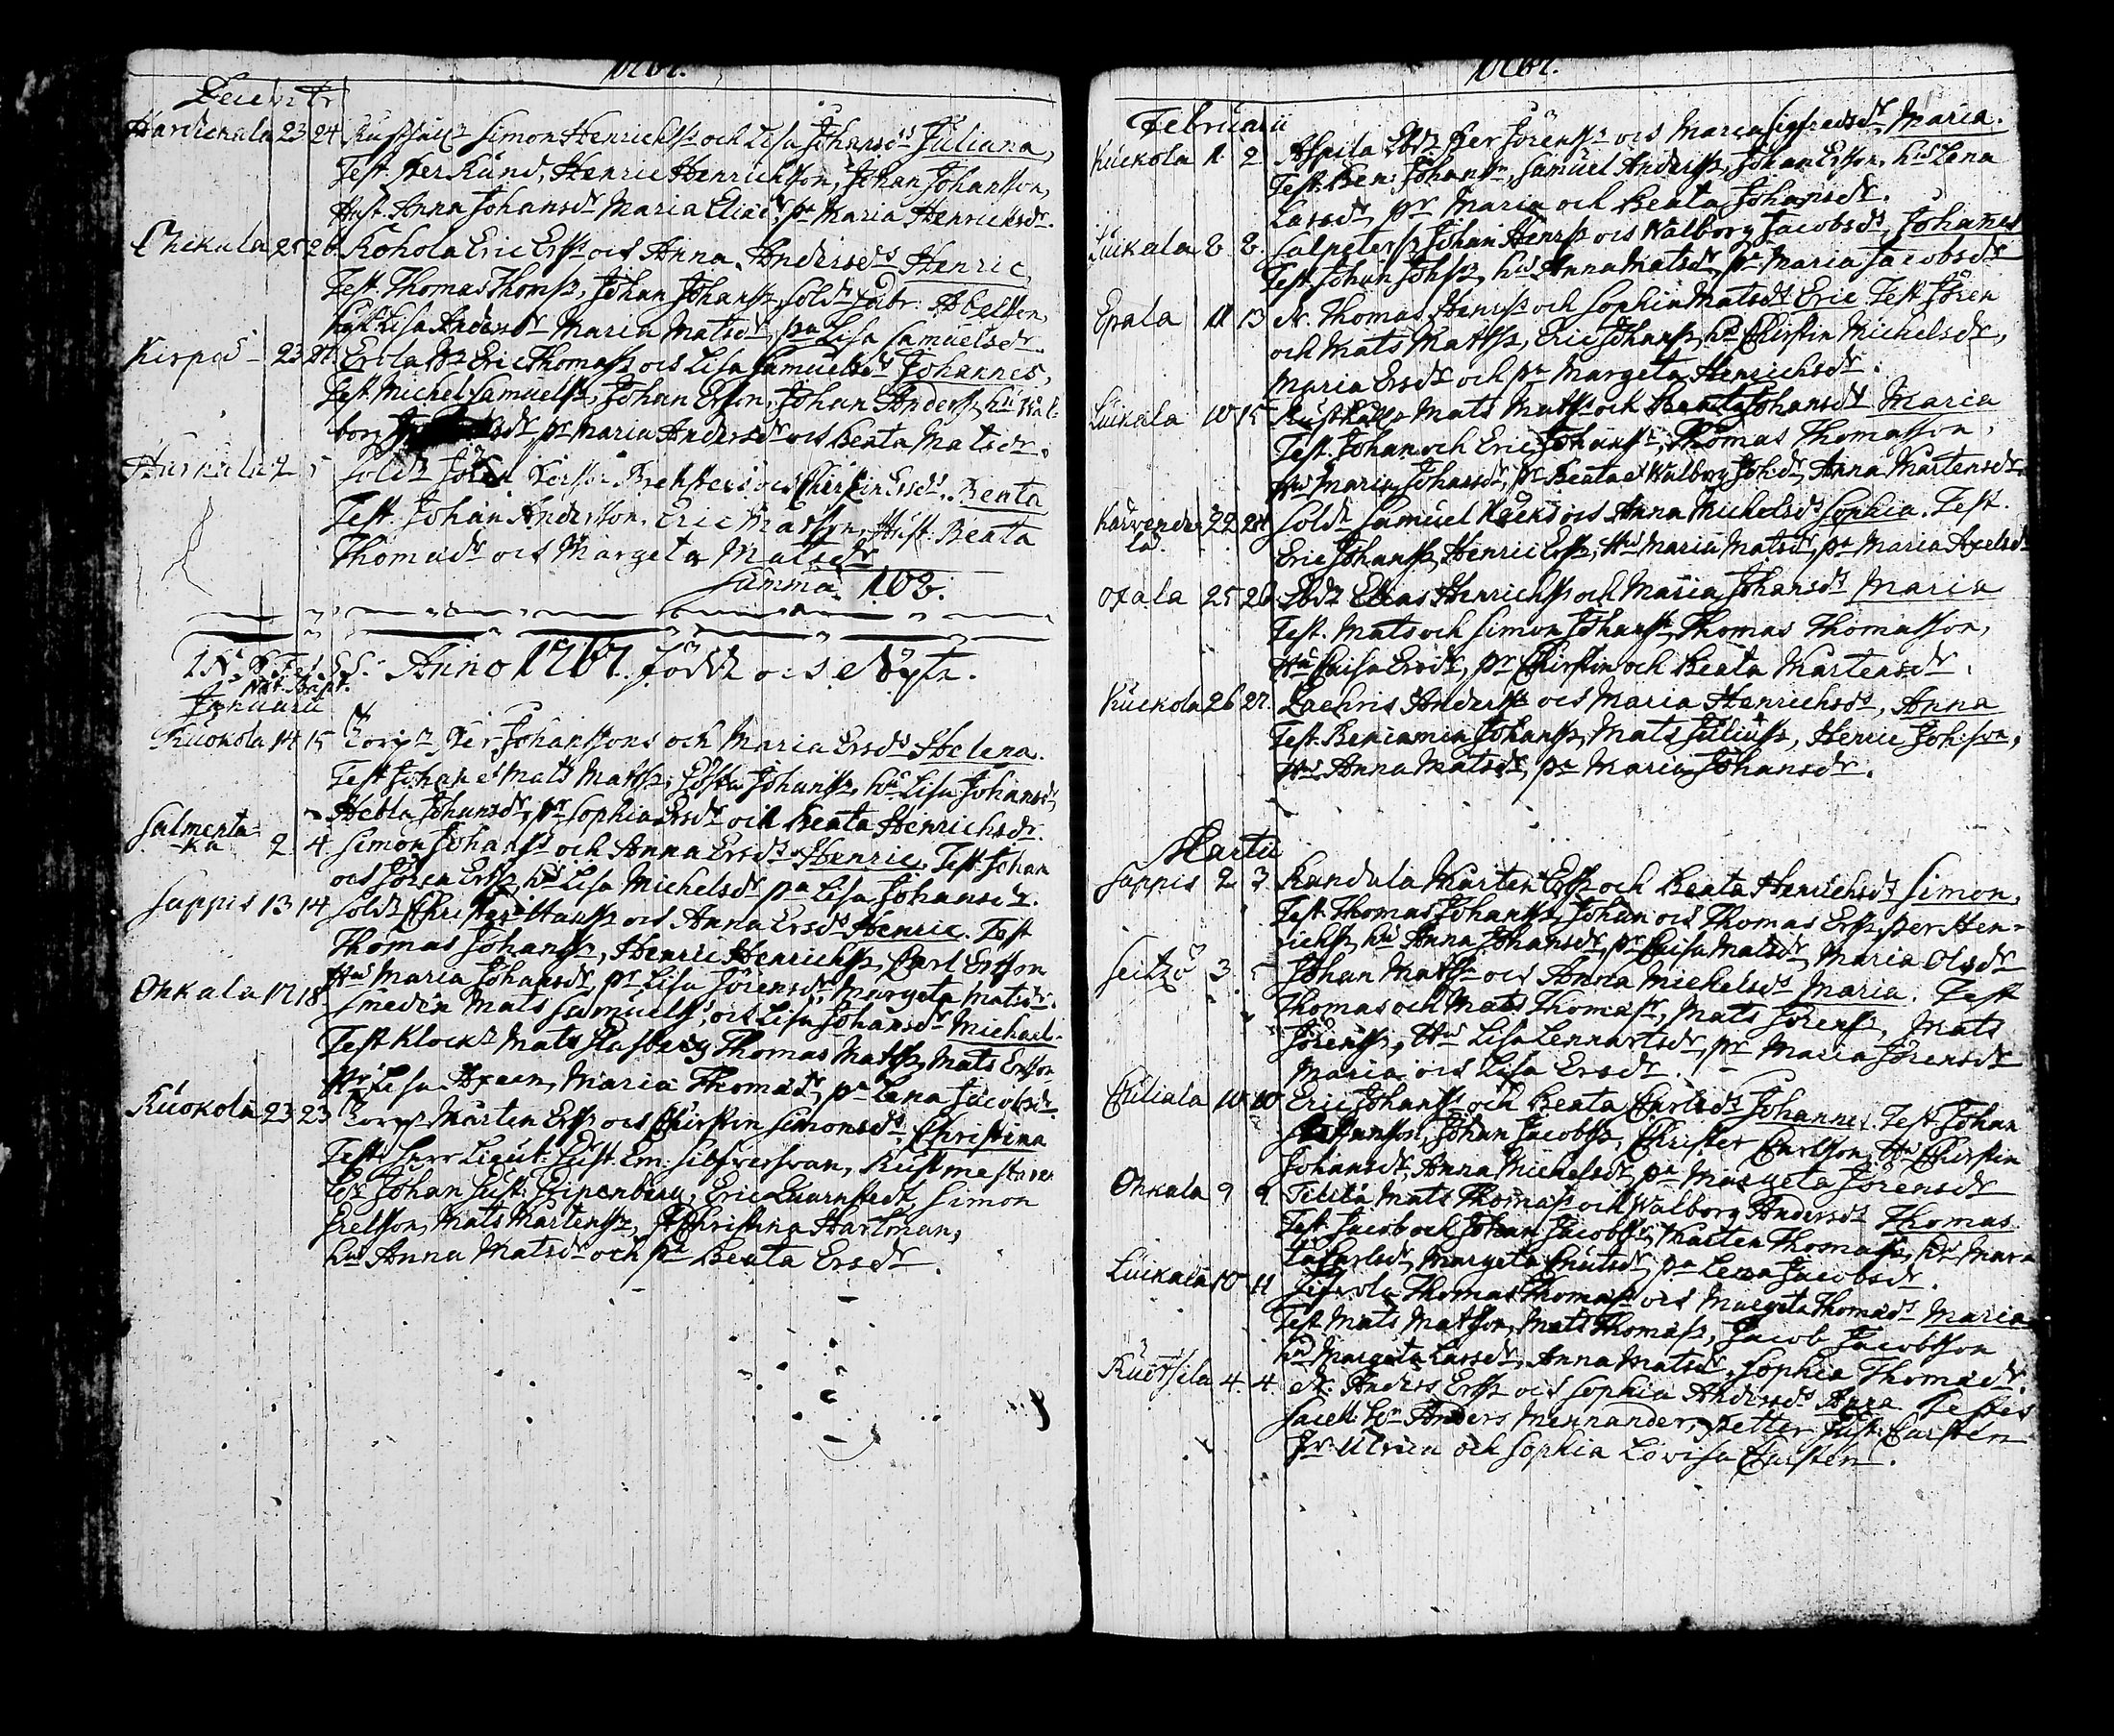 1767.
Decembr
Hardickala 23 24 Rusthåll Simon Henrichss och Lisa Johansdr Juliana,
Test. Per Kund, Henric Henrichson, Johan Johansson,
Hust. Anna Johansdr Maria Eliædr, pa Maria Henricksdr.
25 26 Kohola Eric Erss och Anna Andersdr Henric
Test. Thomas Thomss, Johan Johanss, Sold. Gabr. Abelson,
Lisa Andersdr Maria Matsdr, pa Lisa Samuelsdr.
23 27 Erola Br Eric Thomass och Lisa Samuelsdr Johannes,
Test. Michel Samuelss, Johan Erson, Johan Anderss, hu Wal-
borg pr Maria Andersdr och Beata Matsdr.
2 5 Soldn och Chirstin Ersdr. Beata
Test. Johan Andersson, Eric Marsson, Hust. Beata
Thomædr och Margeta Matsdr
Summa 102.
Anno 1767 Födde och Döpte.
Nat. Bapt.
Januarii
Kuokola 14 15 Corpn Per Johanssons och Maria Ersdr Helena.
Test Johan et Mats Matss, Gösta Johanss, hu Lisa Johansdr,
Hebla Johansdr, pr Sophia Ersdr och Beata Henrichsdr.
Salmenta-
ka 2 4 Simon Johanss och Anna Ersdr Henric. Test Johan
och Jören Erss, hu Lisa Michelsdr pa Lisa Johansdr.
Sappis 13 14 Soldn Christer Hanss och Anna Ersdr Henric. Test
Thomas Johanss, Henric Henrichss, Carl Ersson
Hu Maria Johansdr, pr Lisa Jörensdr, Margeta Matsdr.
Ohkala 17 18 Smeden Mats Samuelss, och Lisa Johansdr Michael.
Test Klockn Mats Thomas Matss, Mats Ersson
Hu Lisa Axeen, Maria Thomædr, pa Lena Jacobsdr.
Kuokola 23 23 Corpn Mårten Erss och Chirstin Simonsdr, Christina
Test: Herr Lieut: Gust. Em: Silfversvan, Rustmestaren
Hr Johan Gust: Stipenberg, Eric Quarnstedt, Simon
Grelson, Mats Mårtenss, Fr Christina Hartman,
hu Anna Matsdr och pa Beata Ersdr.
1767.
Februarii
Kuokola 1 2 Aspila Lbdn Per Jörenss och Maria Sigfredsdr, Maria.
Test. Ben: Johanss, Samuel Anderss, Johan Ersson, hu Lena
Larsdr, pr Maria och Beata Johansdr.
Luikala 8 8 Salpeters. Johan Henrss och Walborg Jacobsdr, Johannes
Test Johan Johss, hu Anna Matsdr, pa Maria Jacobsdr
Epala 11 13 N. Thomas Henrss och Sophia Matsdr Eric Test Jören
och Mats Matss, Eric Johanss, hu Chirstin Michelsdr,
Maria Ersdr och pa Margeta Henrichsdr.
Luikala 10 15 Rusthålln Mats Matss och Beata Johansdr Maria
Test. Johan och Eric Johanss, Thomas Thomasson,
Hu Maria Johansdr, pr Beata et Walborg Johdr, Anna Mårtensdr
Karvendo-
la 22 24 Soldn Samuel och Anna Michelsdr Sophia. Test.
Eric Johanss, Henric Erss, Hu Maria Matsdr, pa Maria Axelsdr
25 26 Lbdn Elias Henrichss och Maria Johansdr Maria
Test. Mats och Simon Johanss, Thomas Thomasson,
Hu Caisa Ersdr, pr Chirstin och Beata Mårtensdr.
Kuokola 26 27 Zachris Anderss och Maria Henrichsdr, Anna
Test. Beniamin Johanss, Mats Juliuss, Henric Johsson,
Hu Anna Matsdr, pa Maria Johansdr.
Martii
Sappis 2 3 Kandula Mårten Erss och Beata Henrichsdr Simon,
Test. Thomas Johanss, Johan och Thomas Erss, Per Hen-
richss, hu Anna Johansdr, pr Caisa Matsdr, Maria Olsdr
Seitzö 3 5 Johan Matss och Anna Michelsdr Maria. Test
Thomas och Mats Thomass, Mats Jörenss, Mats
Jörenss, Hu Lisa Lennartsdr, pr Maria Jörensdr
Maria och Lisa Ersdr.
10 10 Eric Johanss och Beata Carlsdr Johannes. Test. Johan
Johansson, Johan Jacobss, Christer Carlsson, Hu Chirstin
Johansdr, Anna Michelsdr, pa Margeta Jörensdr
Ohkala 9 9 Tilila Mats Thomass och Walborg Andersdr Thomas
Test. Jacob och Johan Jacobss, Mårten Thomass, hu Mar-
ta Carlsdr, Margeta Knutsdr, pa Lena Jacobsdr.
Luikala 10 11 Thomas Thomass och Margeta Thomædr Maria
Test Mats Matsson, Mats Thomass, Jacob Jacobsson
hu Margeta Larsdr, Anna Matsdr, Sophia Thomædr.
4 4 N. Anders Erss och Sophia Andersdr Anna Testes
Sacell. Hr Anders Mennander, Petter Just. Carsten
Fr Ulrica och Sophia Lovisa Carsten.